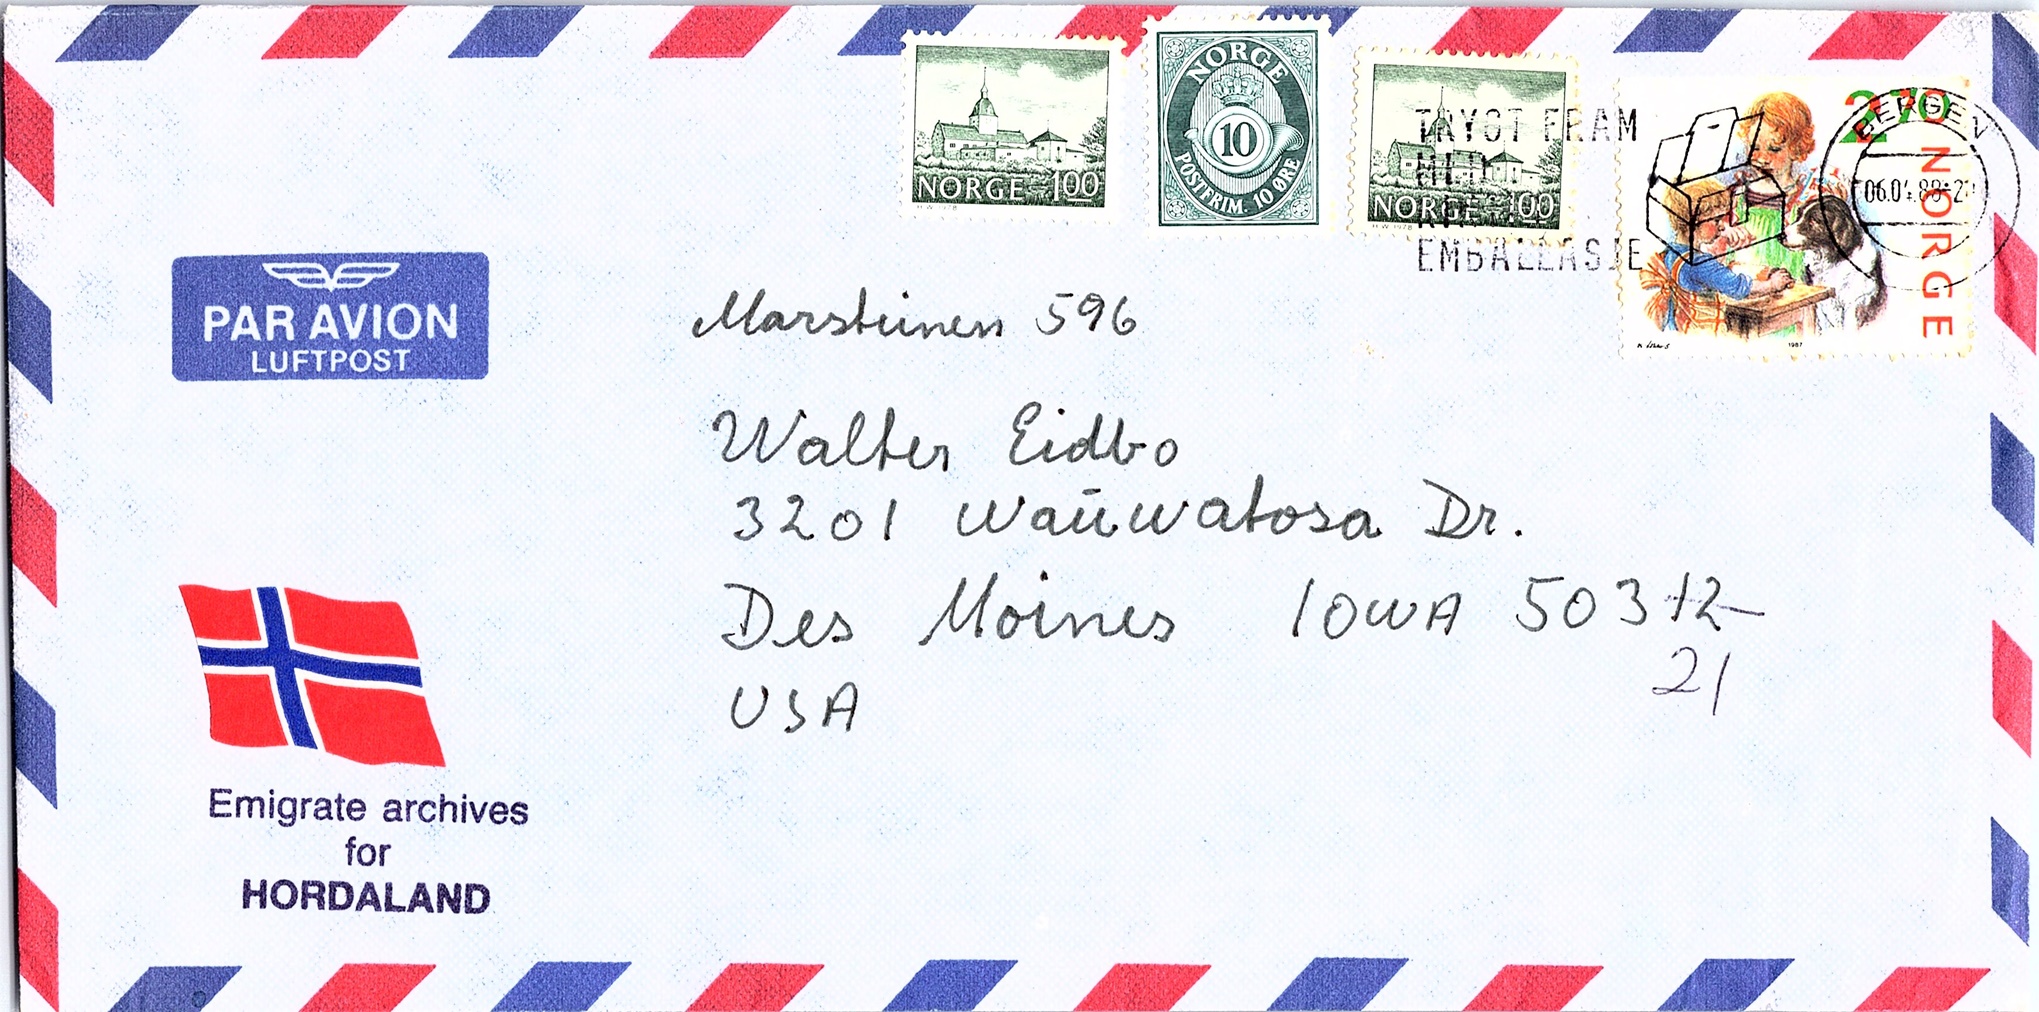 NORGE 100
H.W. 1978
NORGE
10
POSTFRIM. 10 ØRE
NORGE 100
H.W. 1978
2.70
NORGE
1987
BERGEN
06.04.88-2
TRYGT FRAM
EMBALLASJE
PAR AVION
LUFTPOST
Marsteinen 596
Walter Eidbo
3201 Wauwatosa Dr.
Des Moines IOWA 50312
21
USA
Emigrate archives
for
HORDALAND